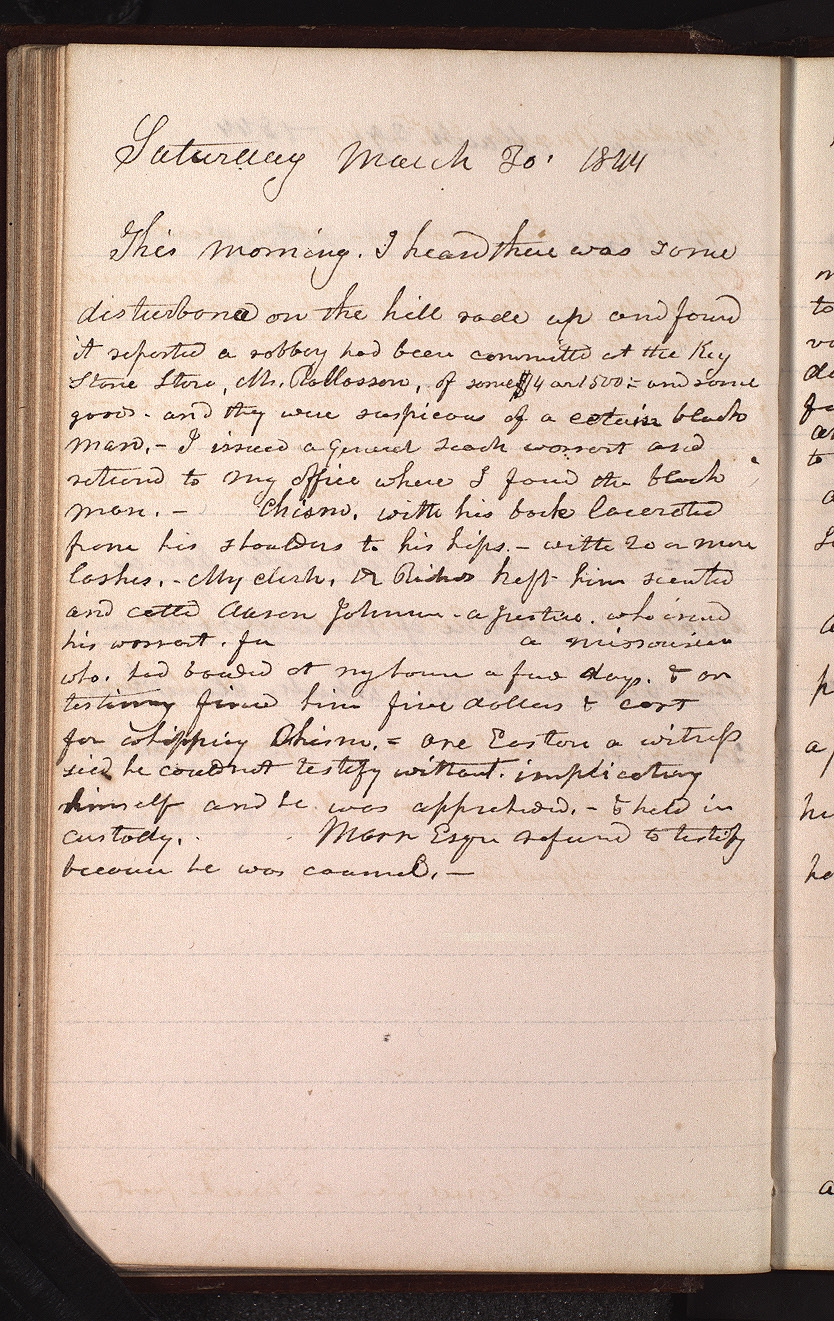 Saturday March 30. 1844
This morning. I heard there was some
disturbance on the hill rode up and found
it reported a robbery had been committed at the Key
Stone Store, Mr. Rollosson, of some $4 or 1500 = and some
goods - and they were suspicious of a cetain black
man. - I issued a general seach warrant and
retured to my office where I found the black
man. - Chism. with his back lacerated
from his shoulders to his hips. - with 20 or more
lashes. - My clerk, Dr Richards kept him secreted
and called Aaron Johnson - a Justice. who issued
his warrant. for a missourian
who. had boarded at my house a few days. & on
testimony fined him five dollars & cost
for whipping Chism. = one Easton a witness
sied he could not testify without. implicating
himself and he was appreheded. - & held in
custody. Marr Esqr refused to testify
because he was councel. -
m
to
vo
to
a
a
a
p
a
he
ho
a